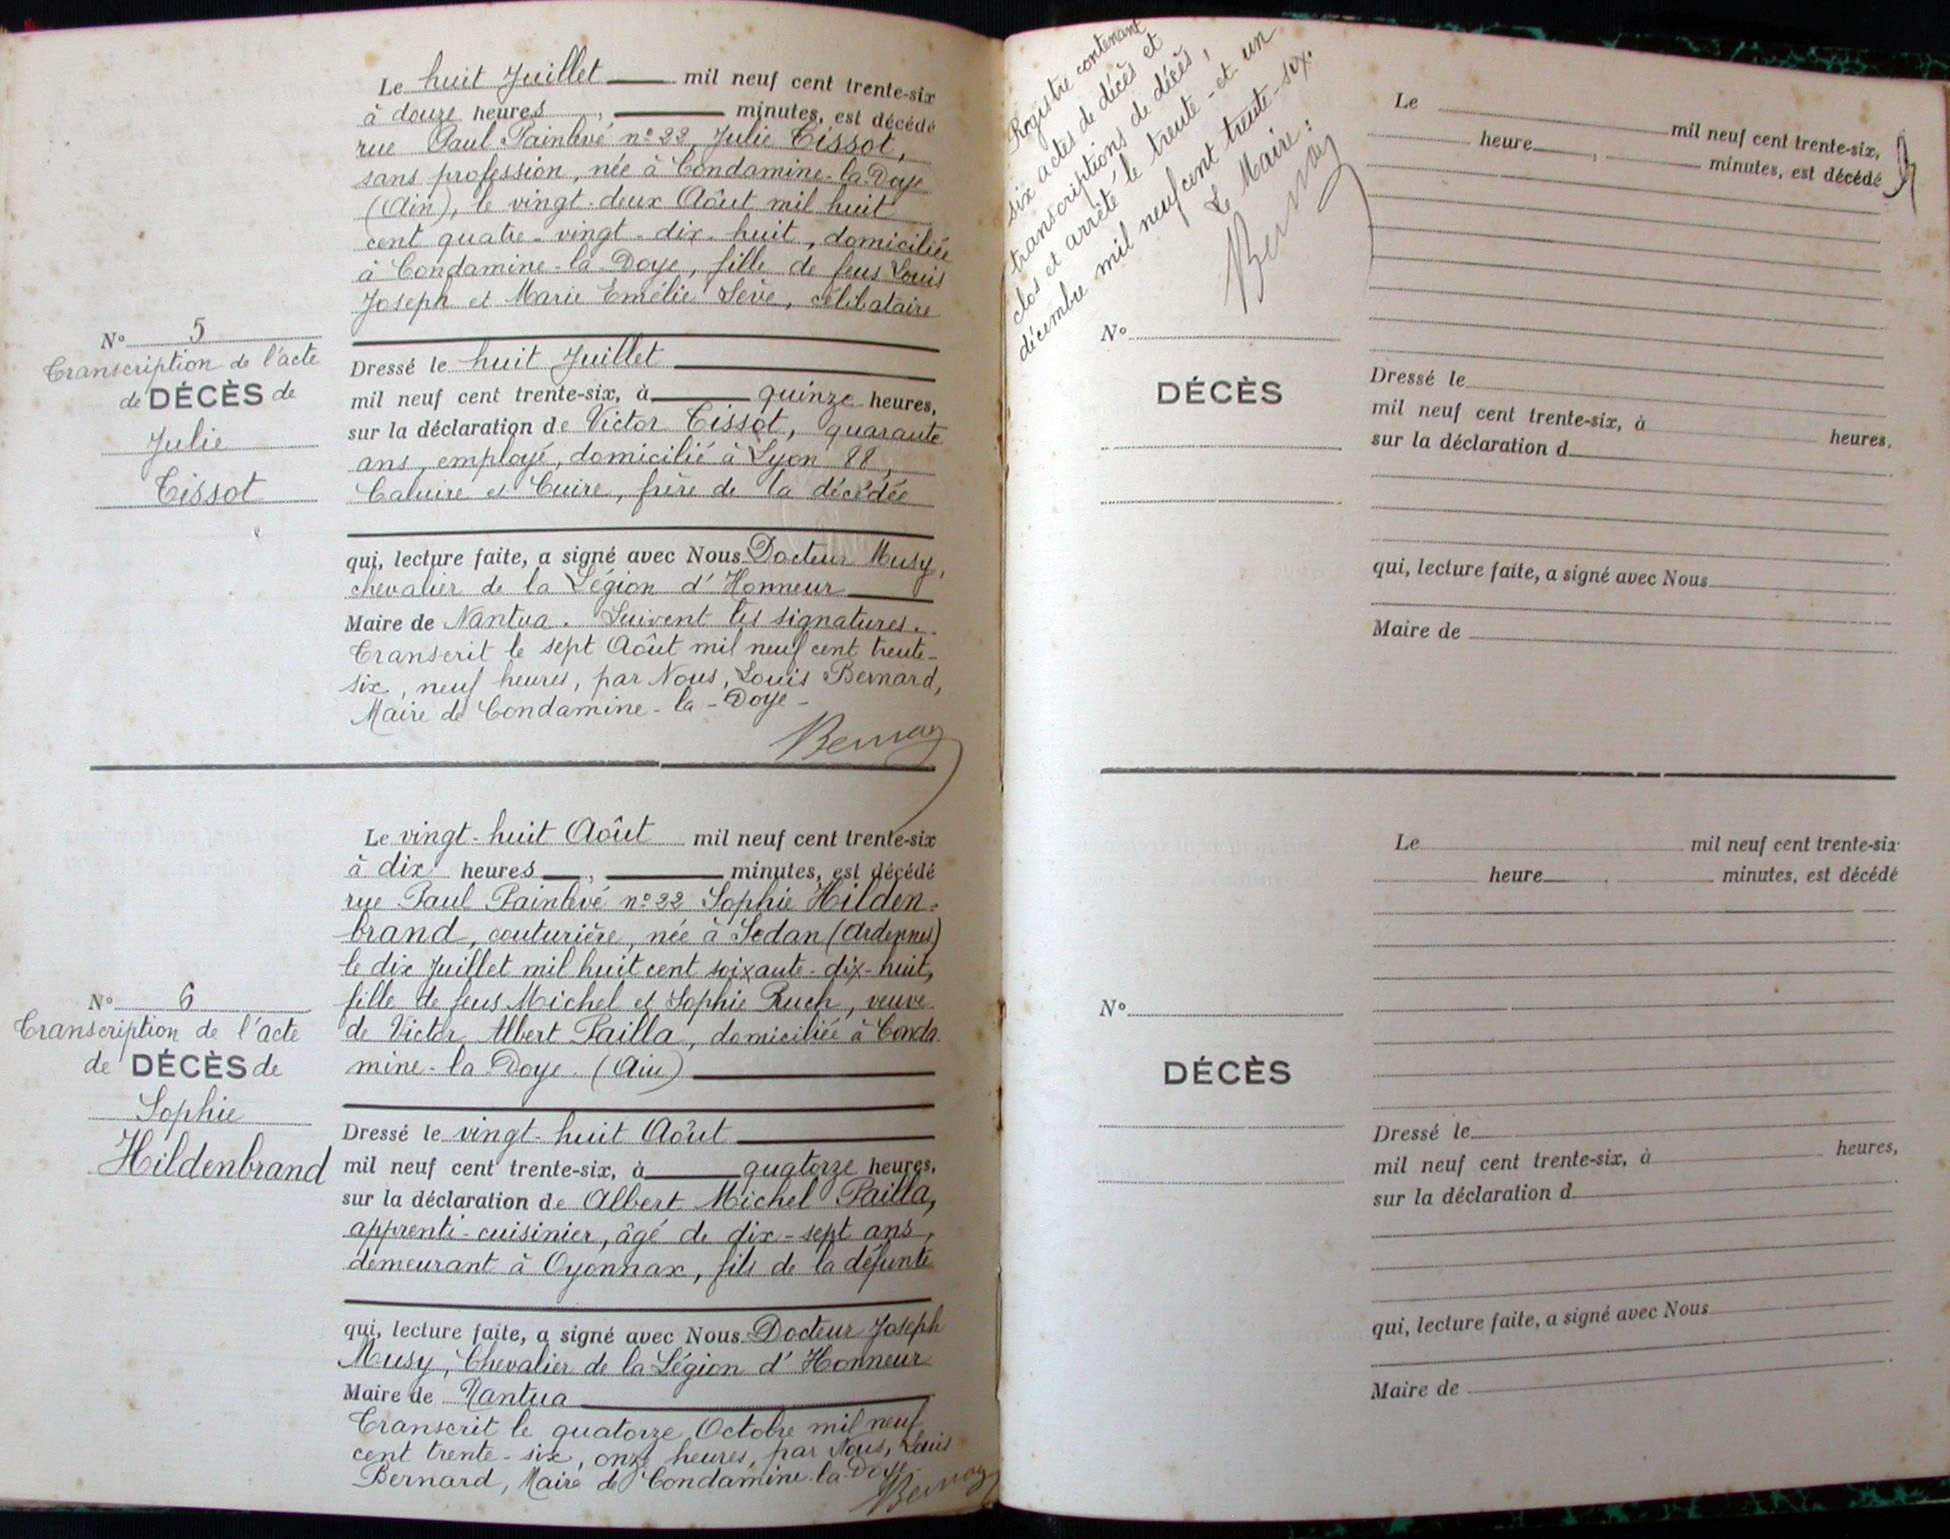 Le huit Juillet mil neuf cent trente-six
à douze heures, minutes, est décédé
rue Paul Painlevé n° 22, Julie Tissot,
sans profession, née à Condamine-la-Doye
(Ain), le vingt-deux Août mil huit
cent quatre-vingt-dix-huit, domiciliée
à Condamine-la-Doye, fille de feus Louis
Joseph et Marie Emélie Sève, célibataire
N° 5
Transcription de l'acte
de DÉCÈS de
Julie
Tissot
Dressé le huit Juillet
mil neuf cent trente-six, à quinze heures,
sur la déclaration de Victor Tissot, quarante
ans, employé, domicilié à Lyon 88,
Caluire et Cuire, frère de la décédée
qui, lecture faite, a signé avec Nous Docteur Musy,
chevalier de la Légion d'Honneur
Maire de Nantua. Suivent les signatures.
Transcrit le sept Août mil neuf cent trente-
six, neuf heures, par Nous, Louis Bernard,
Maire de Condamine-la-Doye-
Le vingt-huit Août mil neuf cent trente-six
à dix heures, minutes, est décédé
rue Paul Painlevé n° 22 Sophie Hilden=
brand, couturière, née à Sedan (Ardennes)
le dix Juillet mil huit cent soixante-dix-huit,
fille de feus Michel et Sophie Ruch, veuve
de Victor Albert Pailla, domiciliée à Conda
mine-la Doye. (Ain)
N° 6
Transcription de l'acte
de DÉCÈS de
Sophie
Hildenbrand
Dressé le vingt-huit Août
mil neuf cent trente-six, à quatorze heures,
sur la déclaration de Albert Michel Pailla,
apprenti-cuisinier, âgé de dix-sept ans,
demeurant à Oyonnax, fils de la défunte
qui, lecture faite, a signé avec Nous Docteur Joseph
Musy, Chevalier de la Légion d'Honneur
Maire de Nantua
Transcrit le quatorze Octobre mil neuf
cent trente-six, onze heures, par Nous, Louis
Bernard, Maire de Condamine-la-Doye-
Registre contenant
six actes de décès et
transcriptions de décès,
clos et arrêté le trente-et-un
décembre mil neuf cent trente-six.
Le Maire:
Le mil neuf cent trente-six,
heure, minutes, est décédé
N°
DÉCÈS
Dressé le
mil neuf cent trente-six, à heures,
sur la déclaration d
qui, lecture faite, a signé avec Nous
Maire de
Le mil neuf cent trente-six
heure, minutes, est décédé
N°
DÉCÈS
Dressé le
mil neuf cent trente-six, à heures,
sur la déclaration d
qui, lecture faite, a signé avec Nous
Maire de